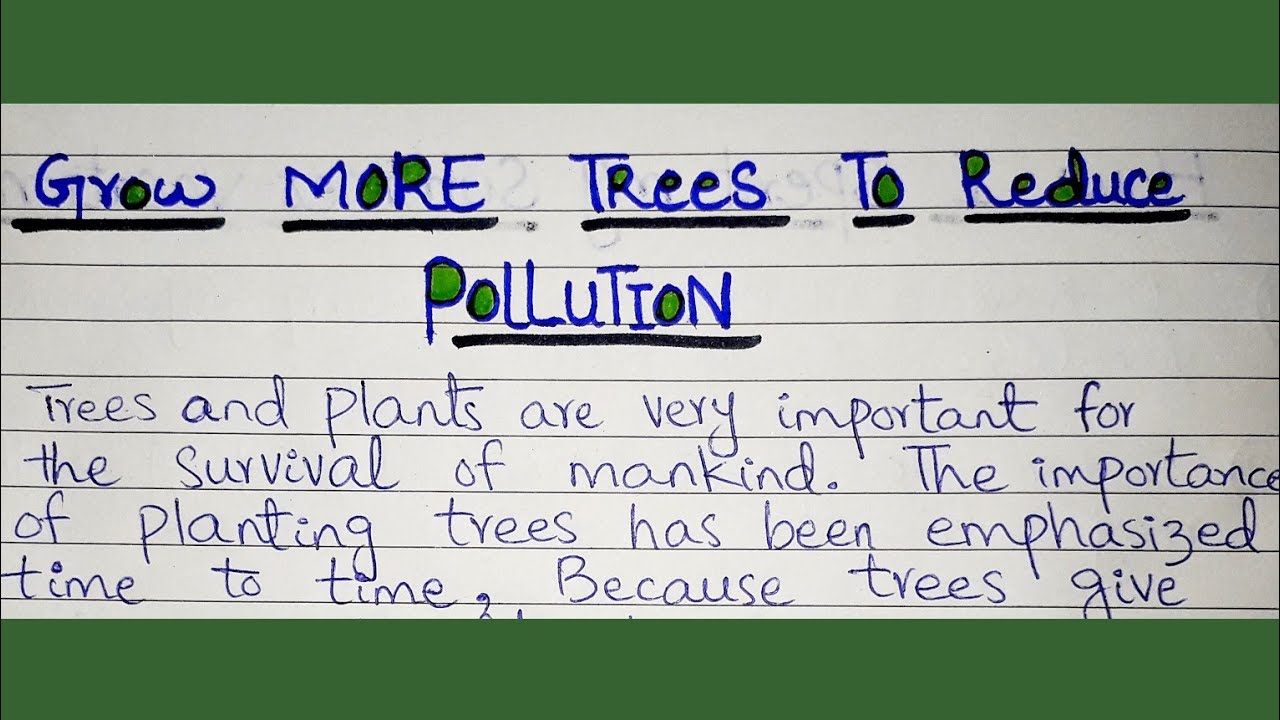 Grow MORE Trees To Reduce
POLLUTION
Trees and plants are very important for
the survival of mankind. The importance
of planting trees has been emphasized
time to time, Because trees give